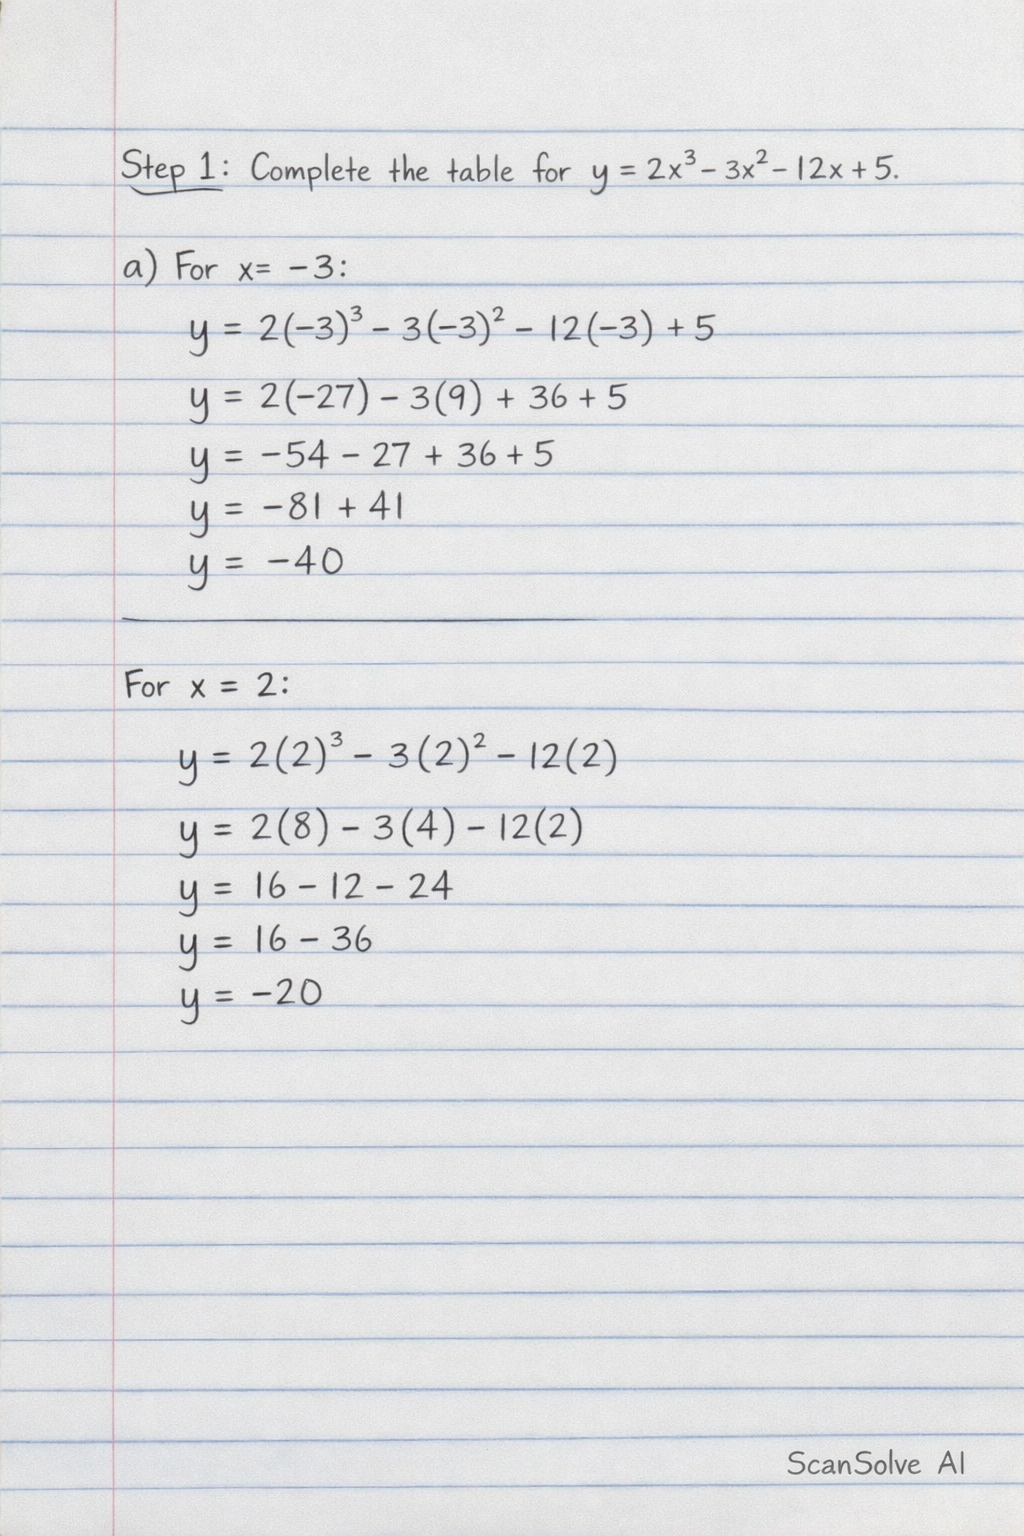 Step 1: Complete the table for y = 2x³ - 3x² - 12x + 5.
a) For x= -3:
y = 2(-3)³ - 3(-3)² - 12(-3) + 5
y = 2(-27) - 3(9) + 36 + 5
y = -54 - 27 + 36 + 5
y = -81 + 41
y = -40
For x = 2:
y = 2(2)³ - 3(2)² - 12(2)
y = 2(8) - 3(4) - 12(2)
y = 16 - 12 - 24
y = 16 - 36
y = -20
ScanSolve AI